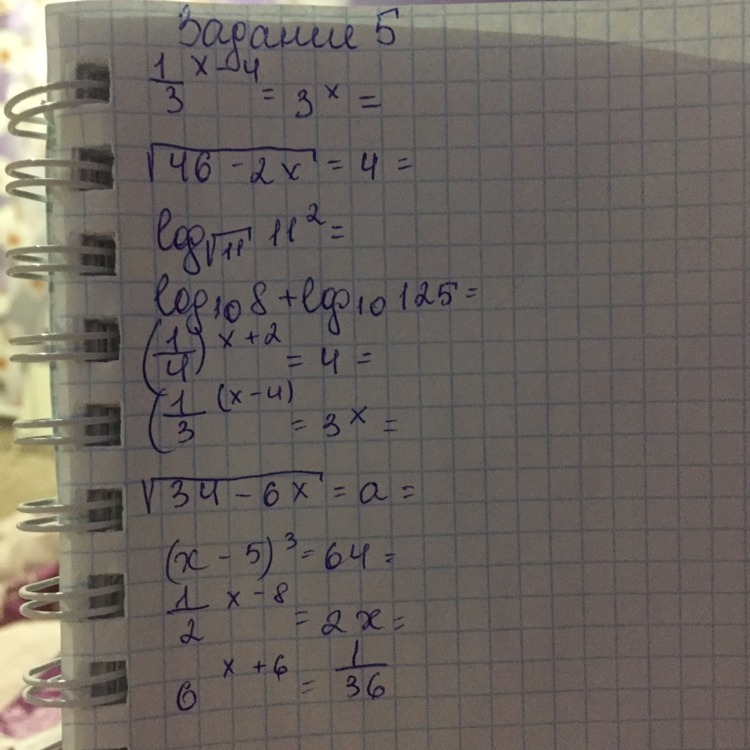 Задание 5
1/3 ^ x - 4 = 3^x =
√46 - 2x = 4 =
log_√11 11^2 =
log_10 8 + log_10 125 =
(1/4)^x + 2 = 4 =
(1/3 ^(x - 4) = 3^x =
√34 - 6x = a =
(x - 5)^3 = 64 =
1/2 ^ x - 8 = 2x =
6^x + 6 = 1/36